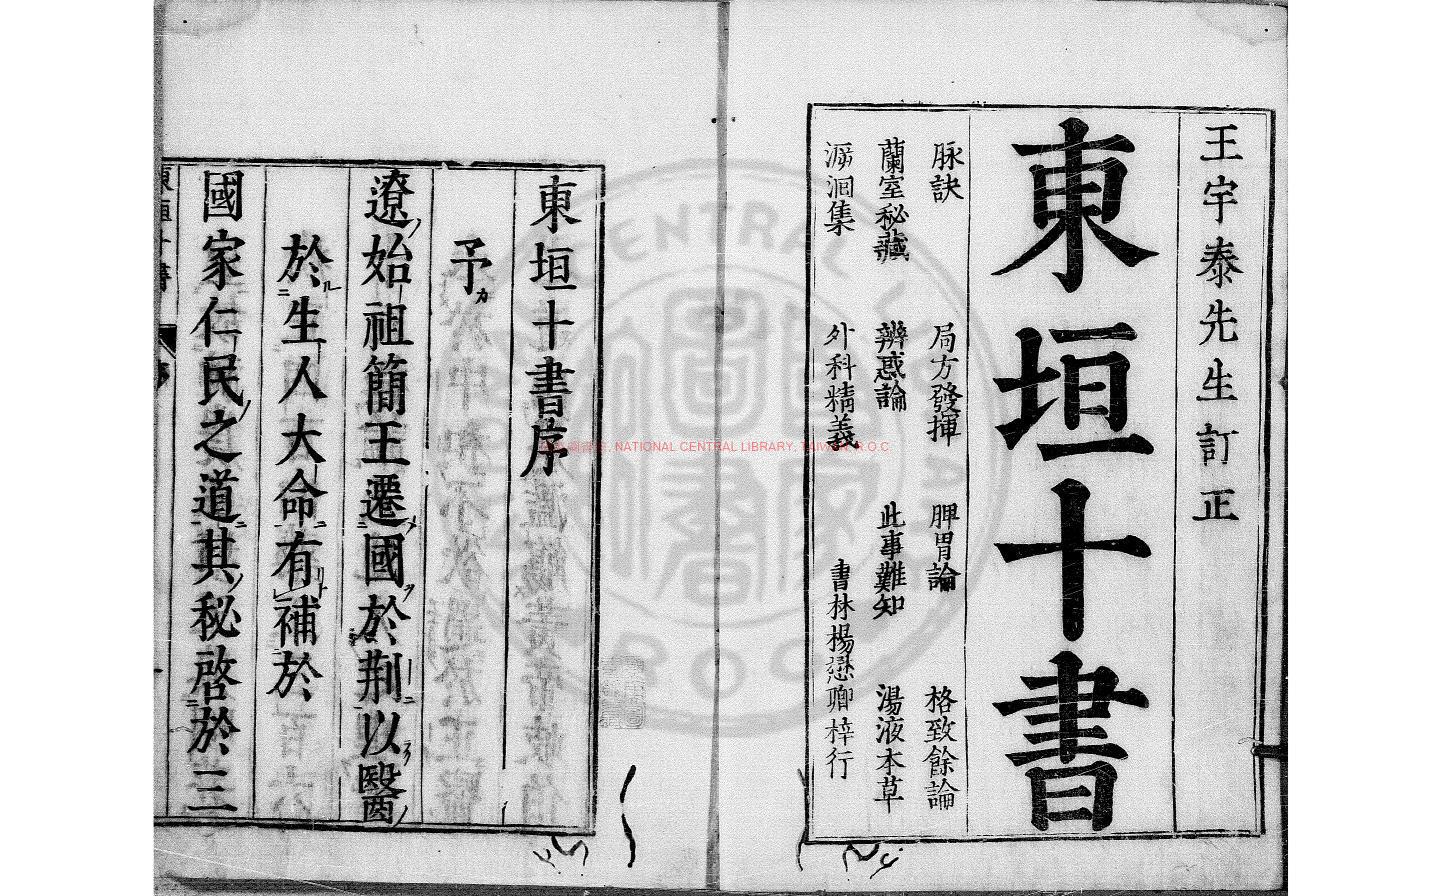 王宇泰先生訂正
東垣十書
脉訣 局方發揮 脾胃論 格致餘論
蘭室秘藏 辨惑論 此事難知 湯液本草
溯洄集 外科精義 書林楊懋卿梓行
東垣十書序
予
遼始祖簡王遷國於荆以醫
於生人大命有補於
國家仁民之道其秘啓於三
NATIONAL CENTRAL LIBRARY, TAIWAN, R.O.C